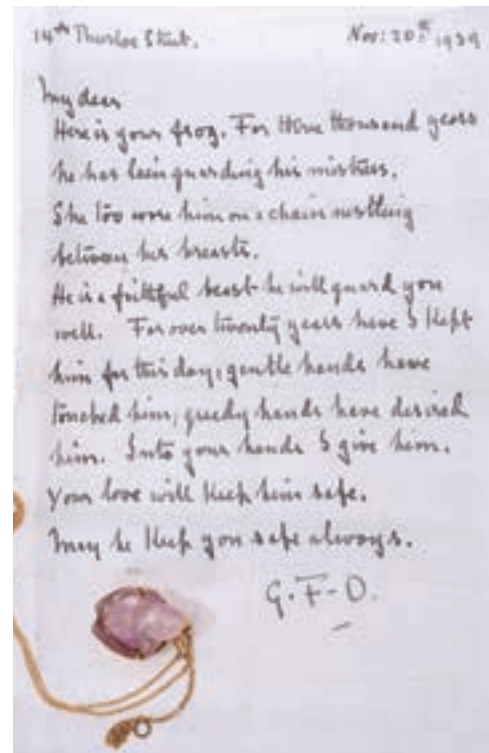 14ᵗʰ Thurloe Street.
Nov: 20ᵗʰ 1939
My dear
Here is your frog. For three thousand years
he has been guarding his mistress.
She too wore him on a chain nestling
between her breasts.
He is a faithful beast he will guard you
well. For over twenty years have I kept
him for this day, gentle hands have
touched him, greedy hands have desired
him. Into your hands I give him.
Your love will keep him safe.
May he keep you safe always.
G.F-O.